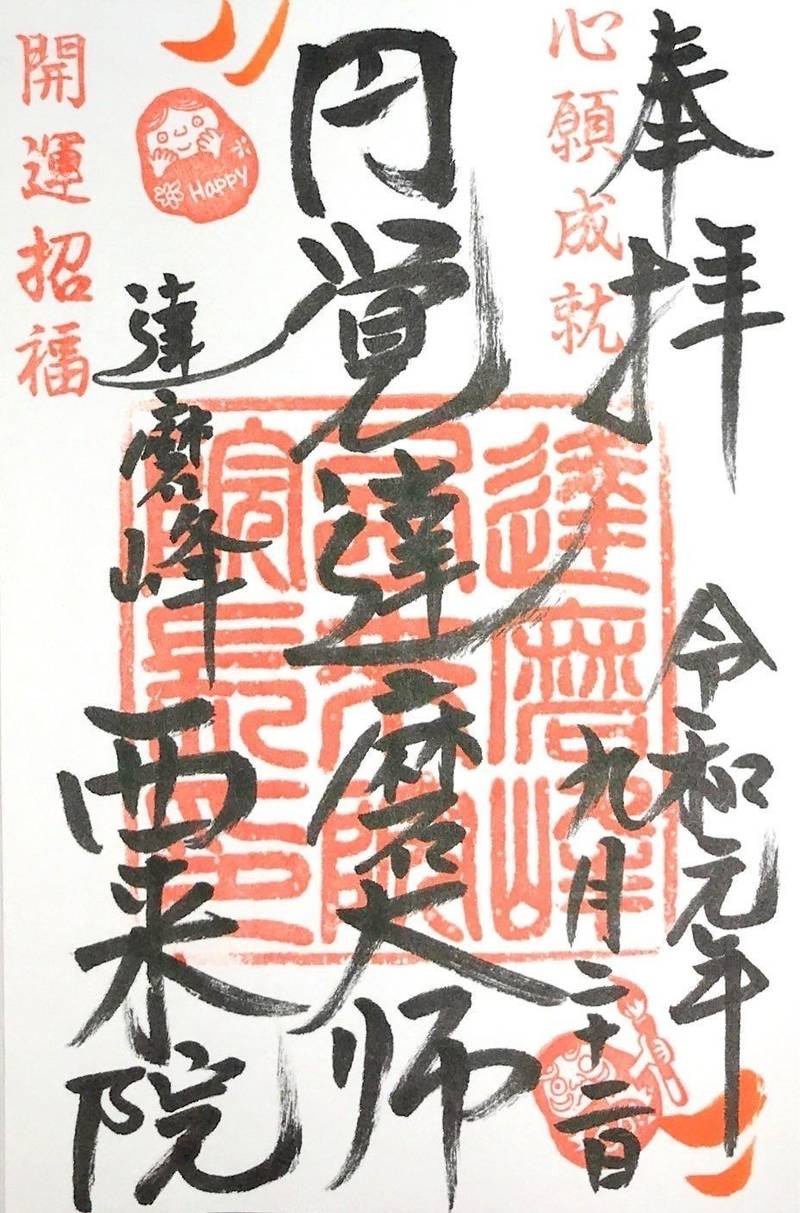 奉拝
心願成就
令和元年
九月二十二日
円覚達磨大師
達磨峰
西来院
達磨峰
西来院
Happy
開運招福